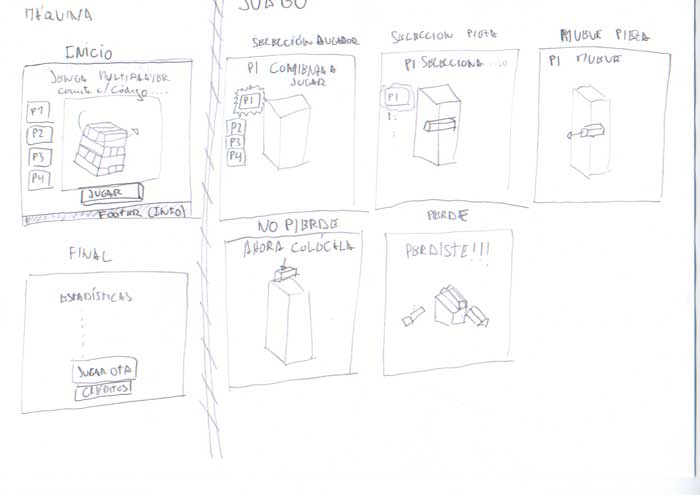 MÁQUINA
INICIO
JENGA MULTIPLAYER
P1
P2
P3
P4
JUGAR
FOOTER (INFO)
FINAL
ESTADÍSTICAS
JUGAR OTA
CRÉDITOS
JUEGO
SELECCIÓN JUGADOR
P1 COMIENZA A
JUGAR
P1
P2
P3
P4
SELECCION PIEZA
P1 SELECCIONA....
P1
MUEVE PIEZA
P1 MUEVE
NO PIERDE
AHORA COLÓCALA
PIERDE
PERDISTE!!!